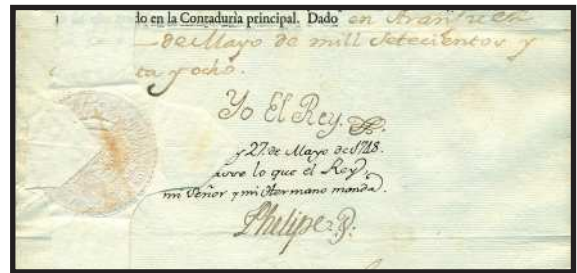 do en la Contaduria principal. Dado en Aranjuez
de Mayo de mill Setecientos y
ta y ocho.
Yo El Rey.
y 27. de Mayo de 1748.
lo que el Rey,
mi Señor y mi Hermano manda.
Phelipe